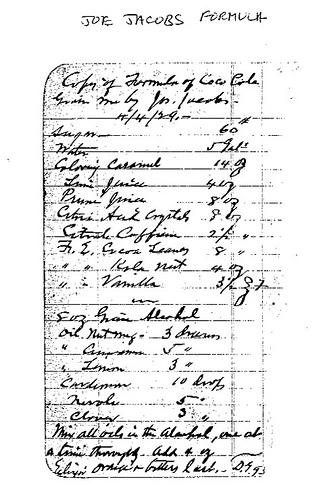 JOE JACOBS FORMULA
Copy of Formula of Coco Cola
Given me by Jos. Jacobs.
4/4/29.—
Sugar 60 #
Water 5 Gals
Coloring Caramel 14 oz
Lime Juice 4 oz
Prune Juice 8 oz
Citric Acid Crystals 8 oz
Citrate Caffeine 2 ½ "
F. E. Cocoa Leaves 8 "
" " Kola Nut 4 oz
" " Vanilla 3 ½
in
8 oz Grain Alcohol
Oil Nutmeg - 3 drams
" Cinnamon 5 "
" Lemon 3 "
Cardamom 10 drops
Nerole 5 "
Cloves 3 "
Mix all oils in the Alcohol, one at
a time thoroughly. Add 4 oz
Elixir orange + bitters last.